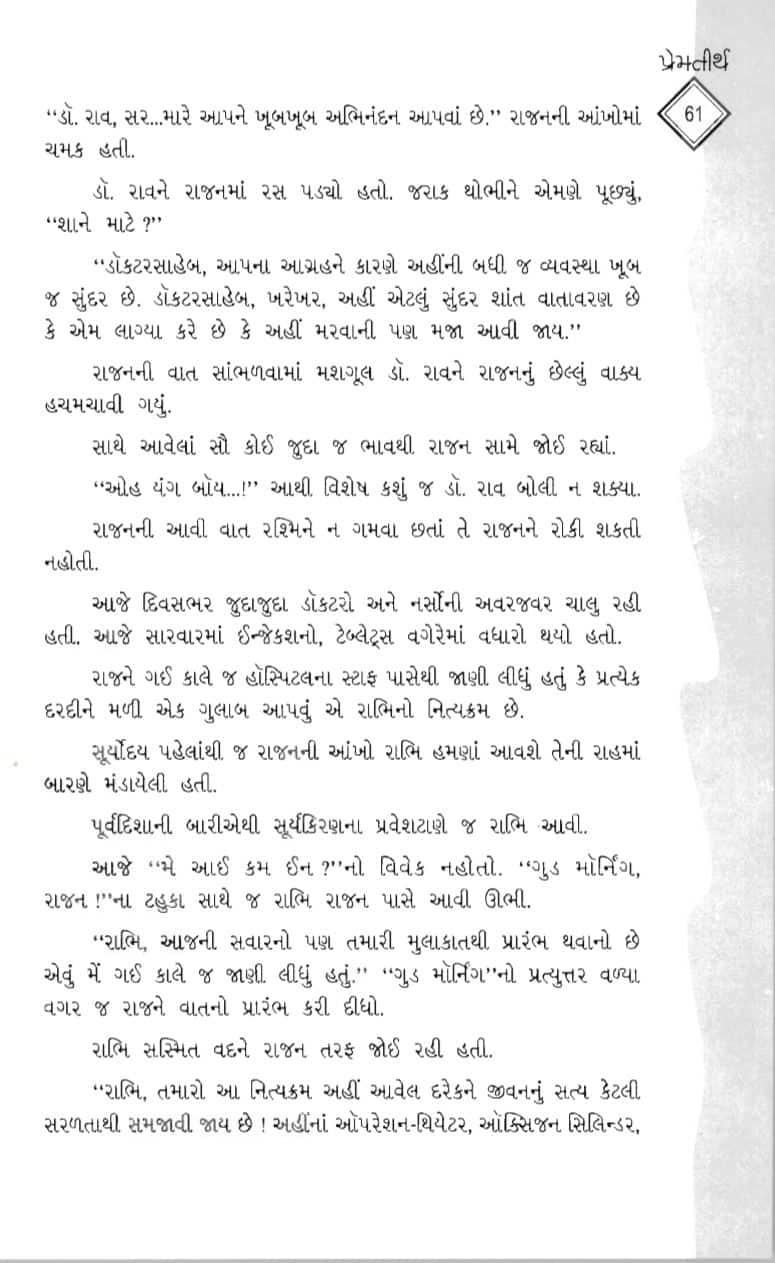 પ્રેમતીર્થ
61
“ડૉ. રાવ, સર...મારે આપને ખૂબખૂબ અભિનંદન આપવાં છે.” રાજનની આંખોમાં
ચમક હતી.
ડૉ. રાવને રાજનમાં રસ પડ્યો હતો. જરાક થોભીને એમણે પૂછ્યું,
“શાને માટે ?”
“ડૉકટરસાહેબ, આપના આગ્રહને કારણે અહીંની બધી જ વ્યવસ્થા ખૂબ
જ સુંદર છે. ડૉકટરસાહેબ, ખરેખર, અહીં એટલું સુંદર શાંત વાતાવરણ છે
કે એમ લાગ્યા કરે છે કે અહીં મરવાની પણ મજા આવી જાય.”
રાજનની વાત સાંભળવામાં મશગૂલ ડૉ. રાવને રાજનનું છેલ્લું વાક્ય
હચમચાવી ગયું.
સાથે આવેલાં સૌ કોઈ જુદા જ ભાવથી રાજન સામે જોઈ રહ્યાં.
“ઓહ યંગ બૉય...!” આથી વિશેષ કશું જ ડૉ. રાવ બોલી ન શક્યા.
રાજનની આવી વાત રશ્મિને ન ગમવા છતાં તે રાજનને રોકી શકતી
નહોતી.
આજે દિવસભર જુદાજુદા ડૉકટરો અને નર્સોની અવરજવર ચાલુ રહી
હતી. આજે સારવારમાં ઈન્જેકશનો, ટેબ્લેટ્સ વગેરેમાં વધારો થયો હતો.
રાજને ગઈ કાલે જ હૉસ્પિટલના સ્ટાફ પાસેથી જાણી લીધું હતું કે પ્રત્યેક
દરદીને મળી એક ગુલાબ આપવું એ રાભિનો નિત્યક્રમ છે.
સૂર્યોદય પહેલાંથી જ રાજનની આંખો રાભિ હમણાં આવશે તેની રાહમાં
બારણે મંડાયેલી હતી.
પૂર્વદિશાની બારીએથી સૂર્યકિરણના પ્રવેશટાણે જ રાભિ આવી.
આજે “મે આઈ કમ ઈન ?”નો વિવેક નહોતો. “ગુડ મૉર્નિંગ,
રાજન !”ના ટહુકા સાથે જ રાભિ રાજન પાસે આવી ઊભી.
“રાભિ, આજની સવારનો પણ તમારી મુલાકાતથી પ્રારંભ થવાનો છે
એવું મેં ગઈ કાલે જ જાણી લીધું હતું.” “ગુડ મૉર્નિંગ”નો પ્રત્યુત્તર વળ્યા
વગર જ રાજને વાતનો પ્રારંભ કરી દીધો.
રાભિ સસ્મિત વદને રાજન તરફ જોઈ રહી હતી.
“રાભિ, તમારો આ નિત્યક્રમ અહીં આવેલ દરેકને જીવનનું સત્ય કેટલી
સરળતાથી સમજાવી જાય છે ! અહીંનાં ઑપરેશન-થિયેટર, ઑક્સિજન સિલિન્ડર,